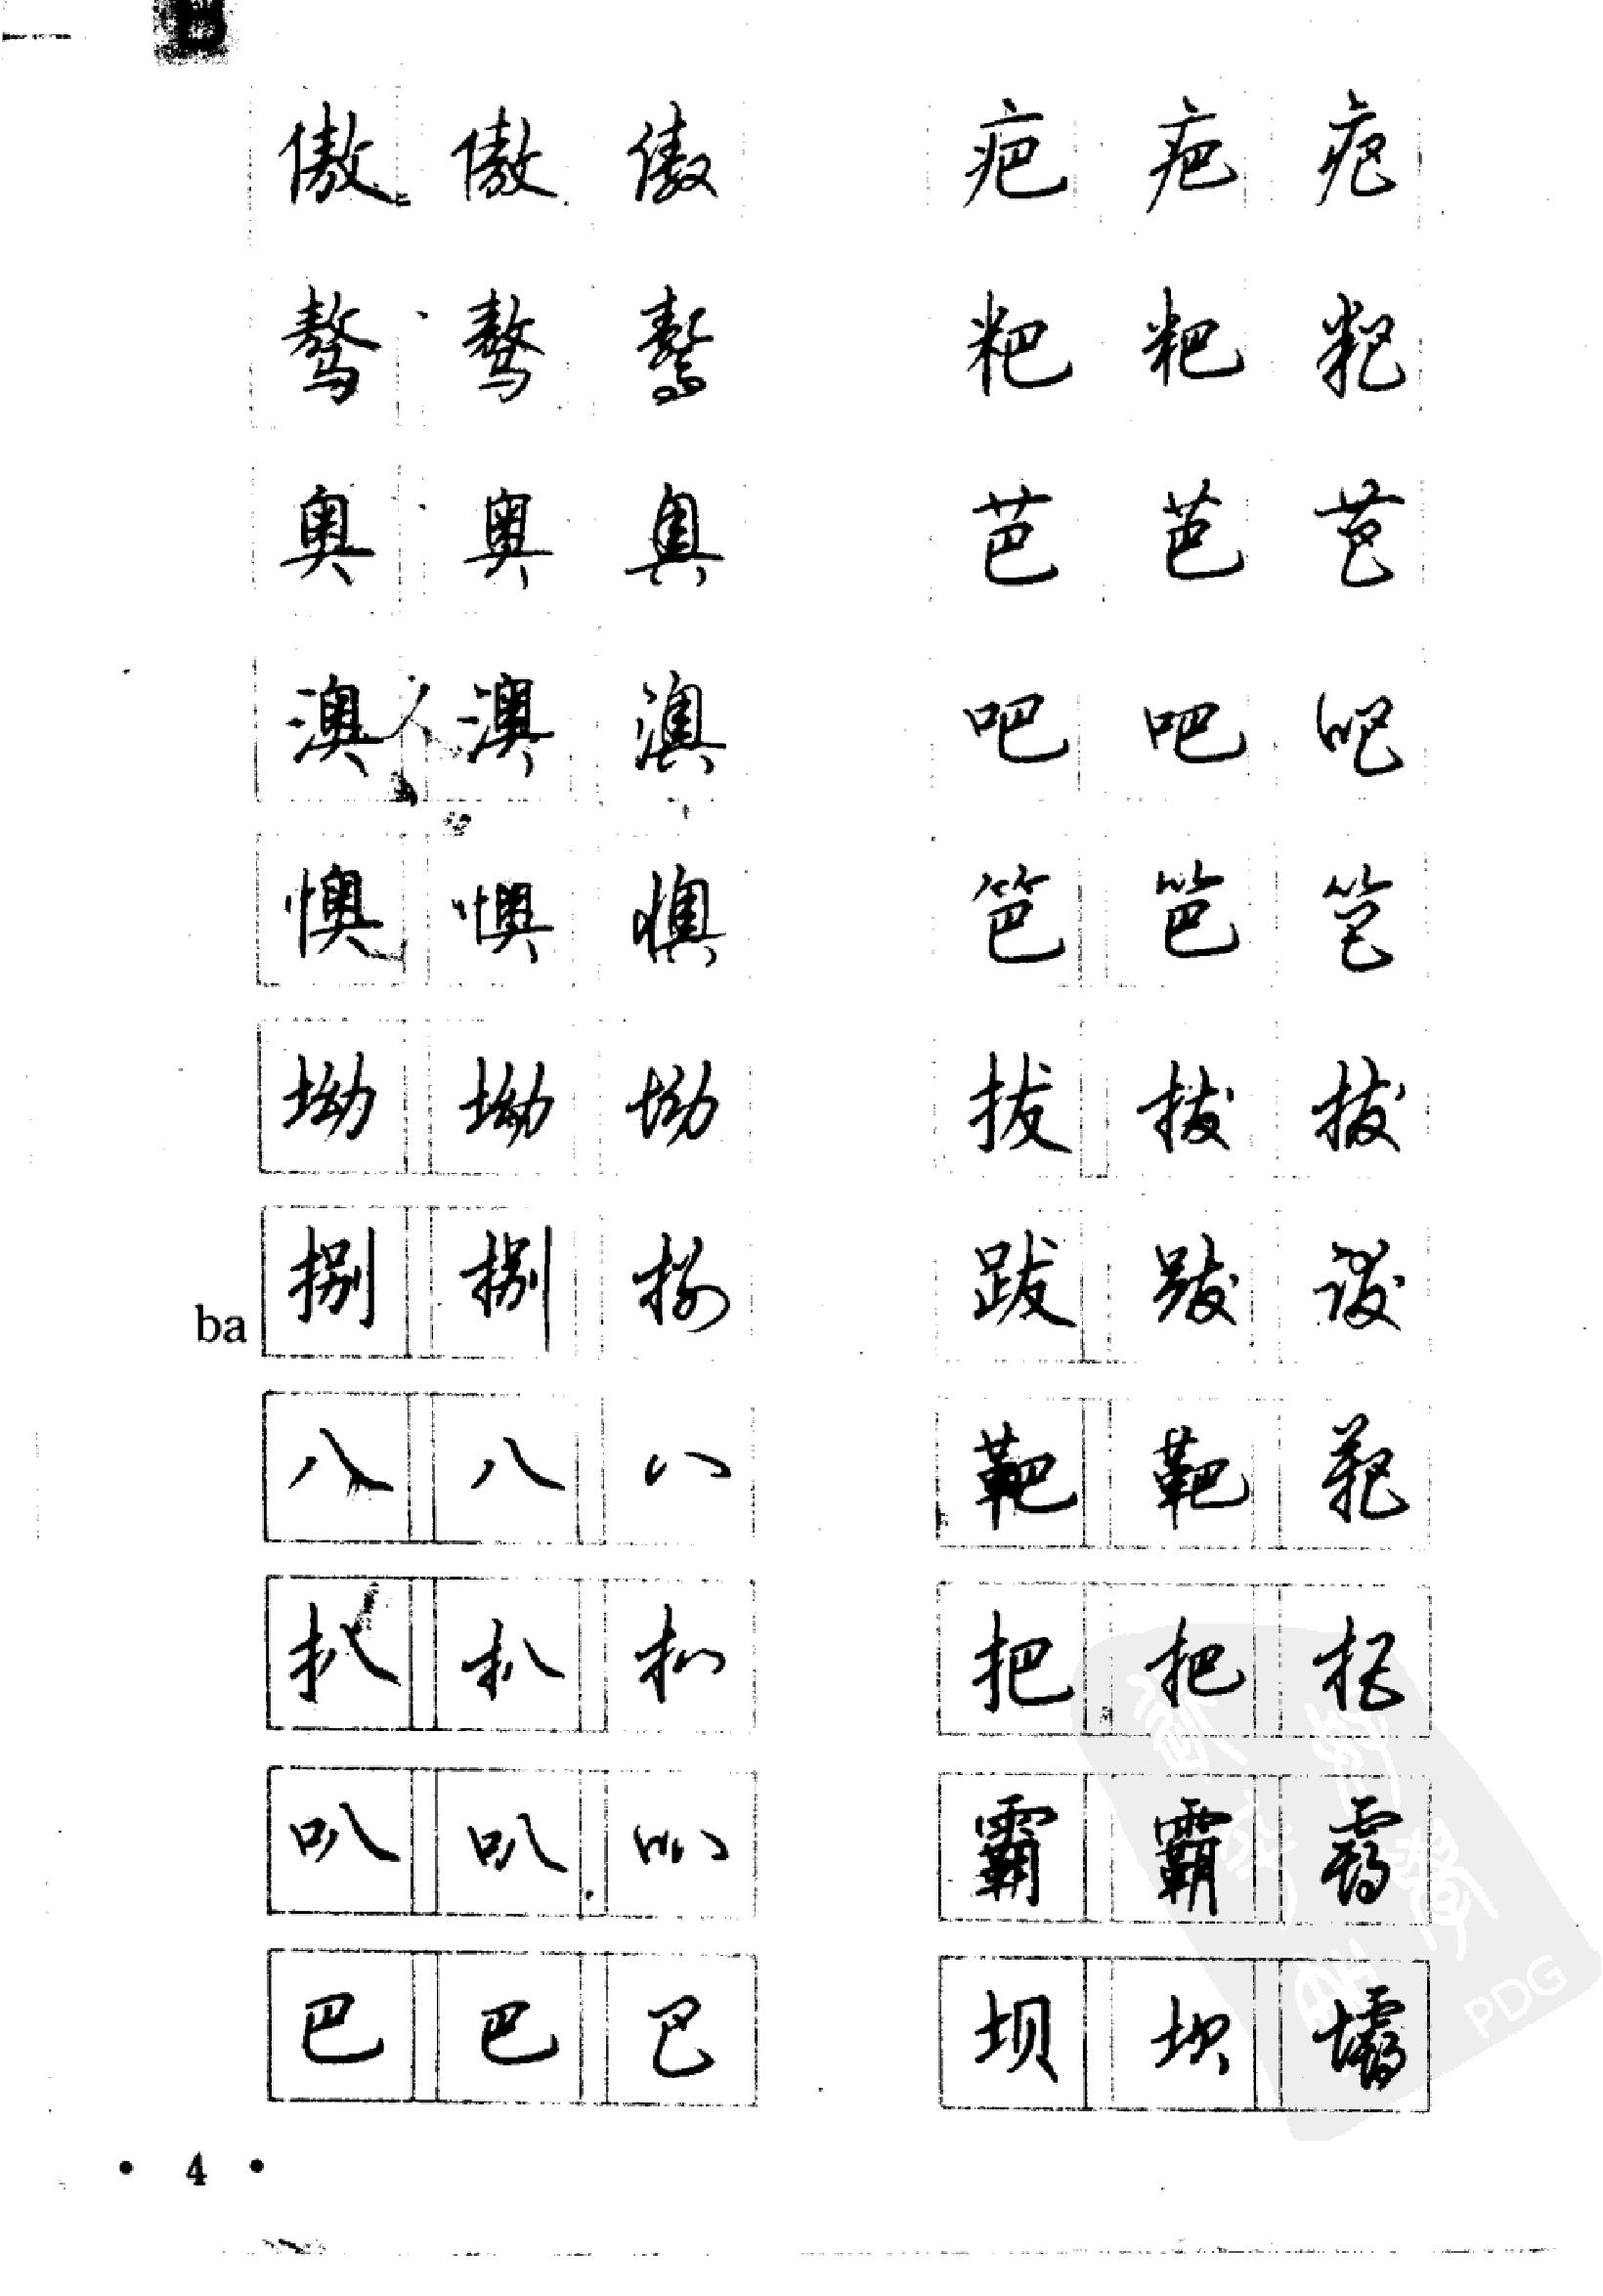 B
傲 傲 傲
骜 骜 骜
奥 奥 奥
澳 澳 澳
懊 懊 懊
坳 坳 坳
ba 捌 捌 捌
八 八 八
扒 扒 扒
叭 叭 叭
巴 巴 巴
疤 疤 疤
粑 粑 粑
芭 芭 芭
吧 吧 吧
笆 笆 笆
拔 拔 拔
跋 跋 跋
靶 靶 靶
把 把 把
霸 霸 霸
坝 坝 壩
• 4 •
PDG